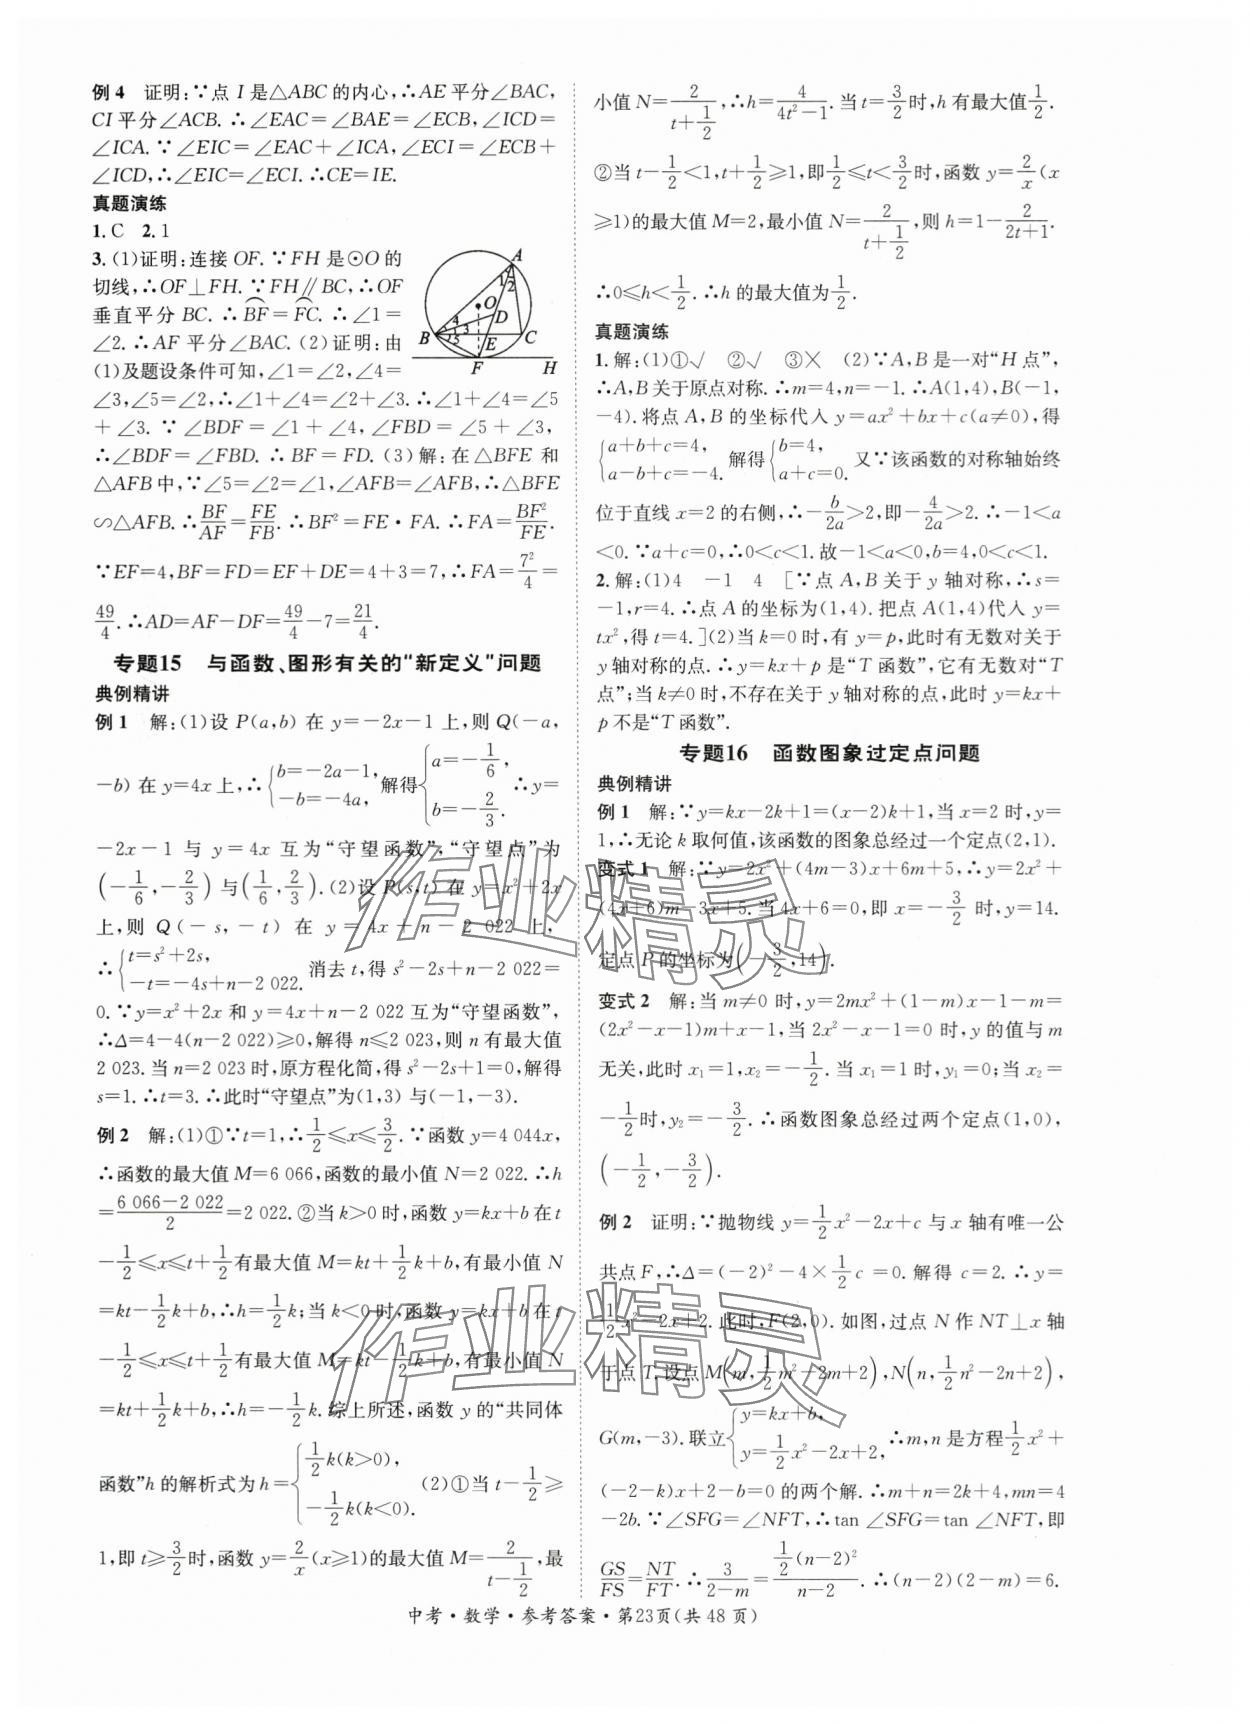 例 4　证明:∵点 I 是△ABC 的内心,∴AE 平分∠BAC,
CI 平分∠ACB. ∴∠EAC=∠BAE=∠ECB,∠ICD=
∠ICA. ∵∠EIC=∠EAC+∠ICA,∠ECI=∠ECB+
∠ICD,∴∠EIC=∠ECI. ∴CE=IE.
真题演练
1. C　2. 1
3. (1)证明:连接 OF. ∵FH 是⊙O 的
切线,∴OF⊥FH. ∵FH∥BC,∴OF
垂直平分 BC. ∴BF⌢=FC⌢. ∴∠1=
∠2. ∴AF 平分∠BAC. (2)证明:由
(1)及题设条件可知,∠1=∠2,∠4=
∠3,∠5=∠2,∴∠1+∠4=∠2+∠3. ∴∠1+∠4=∠5
+∠3. ∵∠BDF=∠1+∠4,∠FBD=∠5+∠3,
∴∠BDF=∠FBD. ∴BF=FD. (3)解:在△BFE 和
△AFB 中,∵∠5=∠2=∠1,∠AFB=∠AFB,∴△BFE
∽△AFB. ∴BF/AF=FE/FB. ∴BF²=FE·FA. ∴FA=BF²/FE.
∵EF=4,BF=FD=EF+DE=4+3=7,∴FA=7²/4=
49/4. ∴AD=AF-DF=49/4-7=21/4.
A
1 2
O
D
B 4 3 5 E C
F H
专题15　与函数、图形有关的“新定义”问题
典例精讲
例 1　解:(1)设 P(a,b) 在 y=-2x-1 上,则 Q(-a,
-b) 在 y=4x 上,∴{b=-2a-1, -b=-4a, 解得{a=-1/6, b=-2/3. ∴y=
-2x-1 与 y=4x 互为“守望函数”,“守望点”为
(-1/6,-2/3)与(1/6,2/3). (2)设 P(s,t) 在 y=x²+2x
上,则 Q(-s,-t) 在 y=4x+n-2 022 上,
∴{t=s²+2s, -t=-4s+n-2 022. 消去 t,得 s²-2s+n-2 022=
0. ∵y=x²+2x 和 y=4x+n-2 022 互为“守望函数”,
∴Δ=4-4(n-2 022)≥0,解得 n≤2 023,则 n 有最大值
2 023. 当 n=2 023 时,原方程化简,得 s²-2s+1=0,解得
s=1. ∴t=3. ∴此时“守望点”为(1,3) 与(-1,-3).
例 2　解:(1)①∵t=1,∴1/2≤x≤3/2. ∵函数 y=4 044x,
∴函数的最大值 M=6 066,函数的最小值 N=2 022. ∴h
=(6 066-2 022)/2=2 022. ②当 k>0 时,函数 y=kx+b 在 t
-1/2≤x≤t+1/2有最大值 M=kt+1/2k+b,有最小值 N
=kt-1/2k+b,∴h=1/2k;当 k<0 时,函数 y=kx+b 在 t
-1/2≤x≤t+1/2有最大值 M=kt-1/2k+b,有最小值 N
=kt+1/2k+b,∴h=-1/2k. 综上所述,函数 y 的“共同体
函数”h 的解析式为 h={1/2k(k>0), -1/2k(k<0). (2)①当 t-1/2≥
1,即 t≥3/2时,函数 y=2/x(x≥1)的最大值 M=2/(t-1/2),最
小值 N=2/(t+1/2),∴h=4/(4t²-1). 当 t=3/2时,h 有最大值1/2.
②当 t-1/2<1,t+1/2≥1,即1/2≤t<3/2时,函数 y=2/x(x
≥1)的最大值 M=2,最小值 N=2/(t+1/2),则 h=1-2/(2t+1).
∴0≤h<1/2. ∴h 的最大值为1/2.
真题演练
1. 解:(1)①√　②√　③×　(2)∵A,B 是一对“H 点”,
∴A,B 关于原点对称. ∴m=4,n=-1. ∴A(1,4),B(-1,
-4). 将点 A,B 的坐标代入 y=ax²+bx+c(a≠0),得
{a+b+c=4, a-b+c=-4. 解得{b=4, a+c=0. 又∵该函数的对称轴始终
位于直线 x=2 的右侧,∴-b/2a>2,即-4/2a>2. ∴-1<a
<0. ∵a+c=0,∴0<c<1. 故-1<a<0,b=4,0<c<1.
2. 解:(1)4　-1　4　[∵点 A,B 关于 y 轴对称,∴s=
-1,r=4. ∴点 A 的坐标为(1,4). 把点 A(1,4)代入 y=
tx²,得 t=4. ](2)当 k=0 时,有 y=p,此时有无数对关于
y 轴对称的点. ∴y=kx+p 是“T 函数”,它有无数对“T
点”;当 k≠0 时,不存在关于 y 轴对称的点,此时 y=kx+
p 不是“T 函数”.
专题16　函数图象过定点问题
典例精讲
例 1　解:∵y=kx-2k+1=(x-2)k+1,当 x=2 时,y=
1,∴无论 k 取何值,该函数的图象总经过一个定点(2,1).
变式 1　解:∵y=2x²+(4m-3)x+6m+5,∴y=2x²+
(4x+6)m-3x+5. 当 4x+6=0,即 x=-3/2 时,y=14.
定点 P 的坐标为(-3/2,14).
变式 2　解:当 m≠0 时,y=2mx²+(1-m)x-1-m=
(2x²-x-1)m+x-1,当 2x²-x-1=0 时,y 的值与 m
无关,此时 x₁=1,x₂=-1/2. 当 x₁=1 时,y₁=0;当 x₂=
-1/2时,y₂=-3/2. ∴函数图象总经过两个定点(1,0),
(-1/2,-3/2).
例 2　证明:∵抛物线 y=1/2x²-2x+c 与 x 轴有唯一公
共点 F,∴Δ=(-2)²-4×1/2c=0. 解得 c=2. ∴y=
1/2x²-2x+2. 此时,F(2,0). 如图,过点 N 作 NT⊥x 轴
于点 T,设点 M(m,1/2m²-2m+2),N(n,1/2n²-2n+2),
G(m,-3). 联立{y=kx+b, y=1/2x²-2x+2, ∴m,n 是方程1/2x²+
(-2-k)x+2-b=0 的两个解. ∴m+n=2k+4,mn=4
-2b. ∵∠SFG=∠NFT,∴tan ∠SFG=tan ∠NFT,即
GS/FS=NT/FT. ∴3/(2-m)=1/2(n-2)²/(n-2). ∴(n-2)(2-m)=6.
中考·数学·参考答案·第23页(共 48 页)
作业精灵
作业精灵